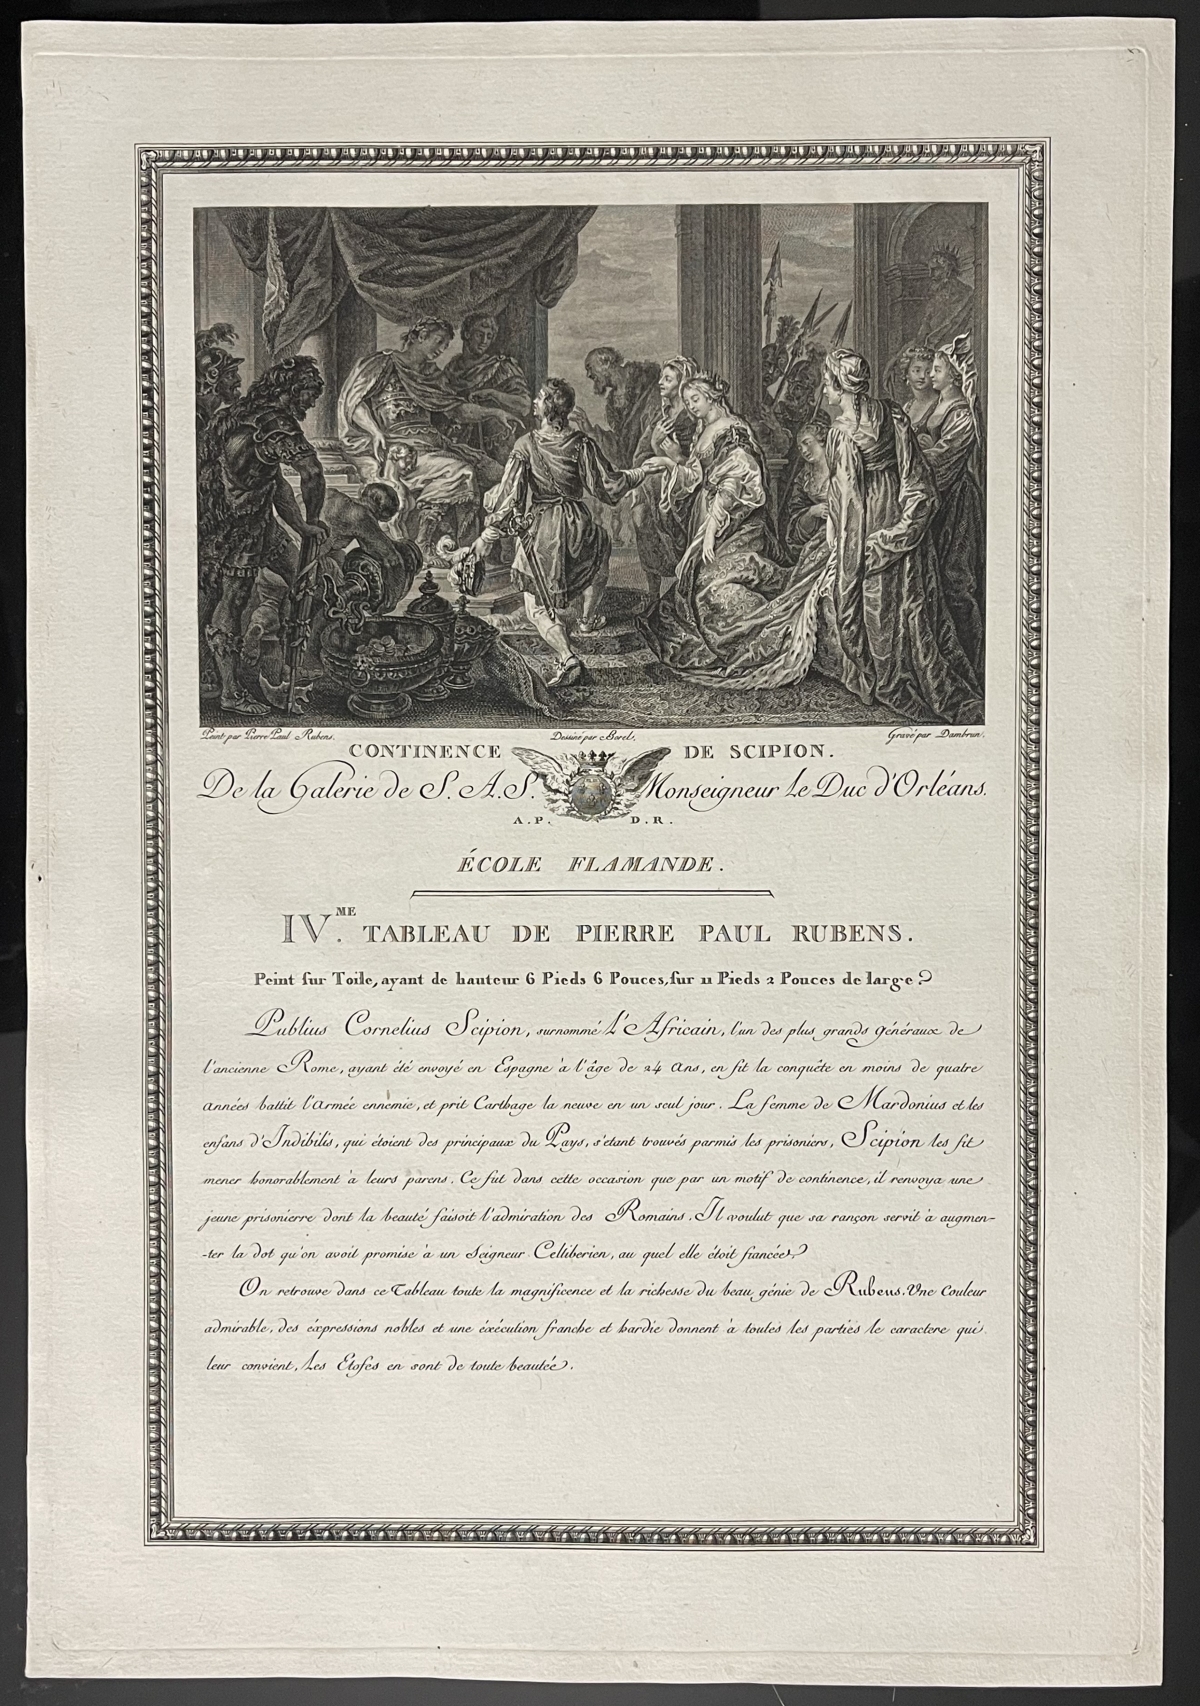 Peint par Pierre Paul Rubens.
Dessiné par Borel.
Gravé par Dambrun.
CONTINENCE DE SCIPION.
De la Galerie de S. A. S. Monseigneur le Duc d'Orléans.
A. P. D. R.
ÉCOLE FLAMANDE.
IV.ME TABLEAU DE PIERRE PAUL RUBENS.
Peint sur Toile, ayant de hauteur 6 Pieds 6 Pouces, sur 11 Pieds 2 Pouces de large.
Publius Cornelius Scipion, surnommé l'Africain, l'un des plus grands généraux de
l'ancienne Rome, ayant été envoyé en Espagne à l'âge de 24 ans, en fit la conquête en moins de quatre
années battit l'Armée ennemie, et prit Carthage la neuve en un seul jour. La femme de Mardonius et les
enfans d'Indibilis, qui étoient des principaux du Pays, s'étant trouvés parmis les prisoniers, Scipion les fit
mener honorablement à leurs parens. Ce fut dans cette occasion que par un motif de continence, il renvoya une
jeune prisonierre dont la beauté faisoit l'admiration des Romains. Il voulut que sa rançon servit à augmen-
-ter la dot qu'on avoit promise à un Seigneur Celtiberien, au quel elle étoit fiancée.
On retrouve dans ce Tableau toute la magnificence et la richesse du beau génie de Rubens. Une Couleur
admirable, des éxpressions nobles et une éxécution franche et hardie donnent à toutes les parties le caractere qui
leur convient, les Etofes en sont de toute beautée.